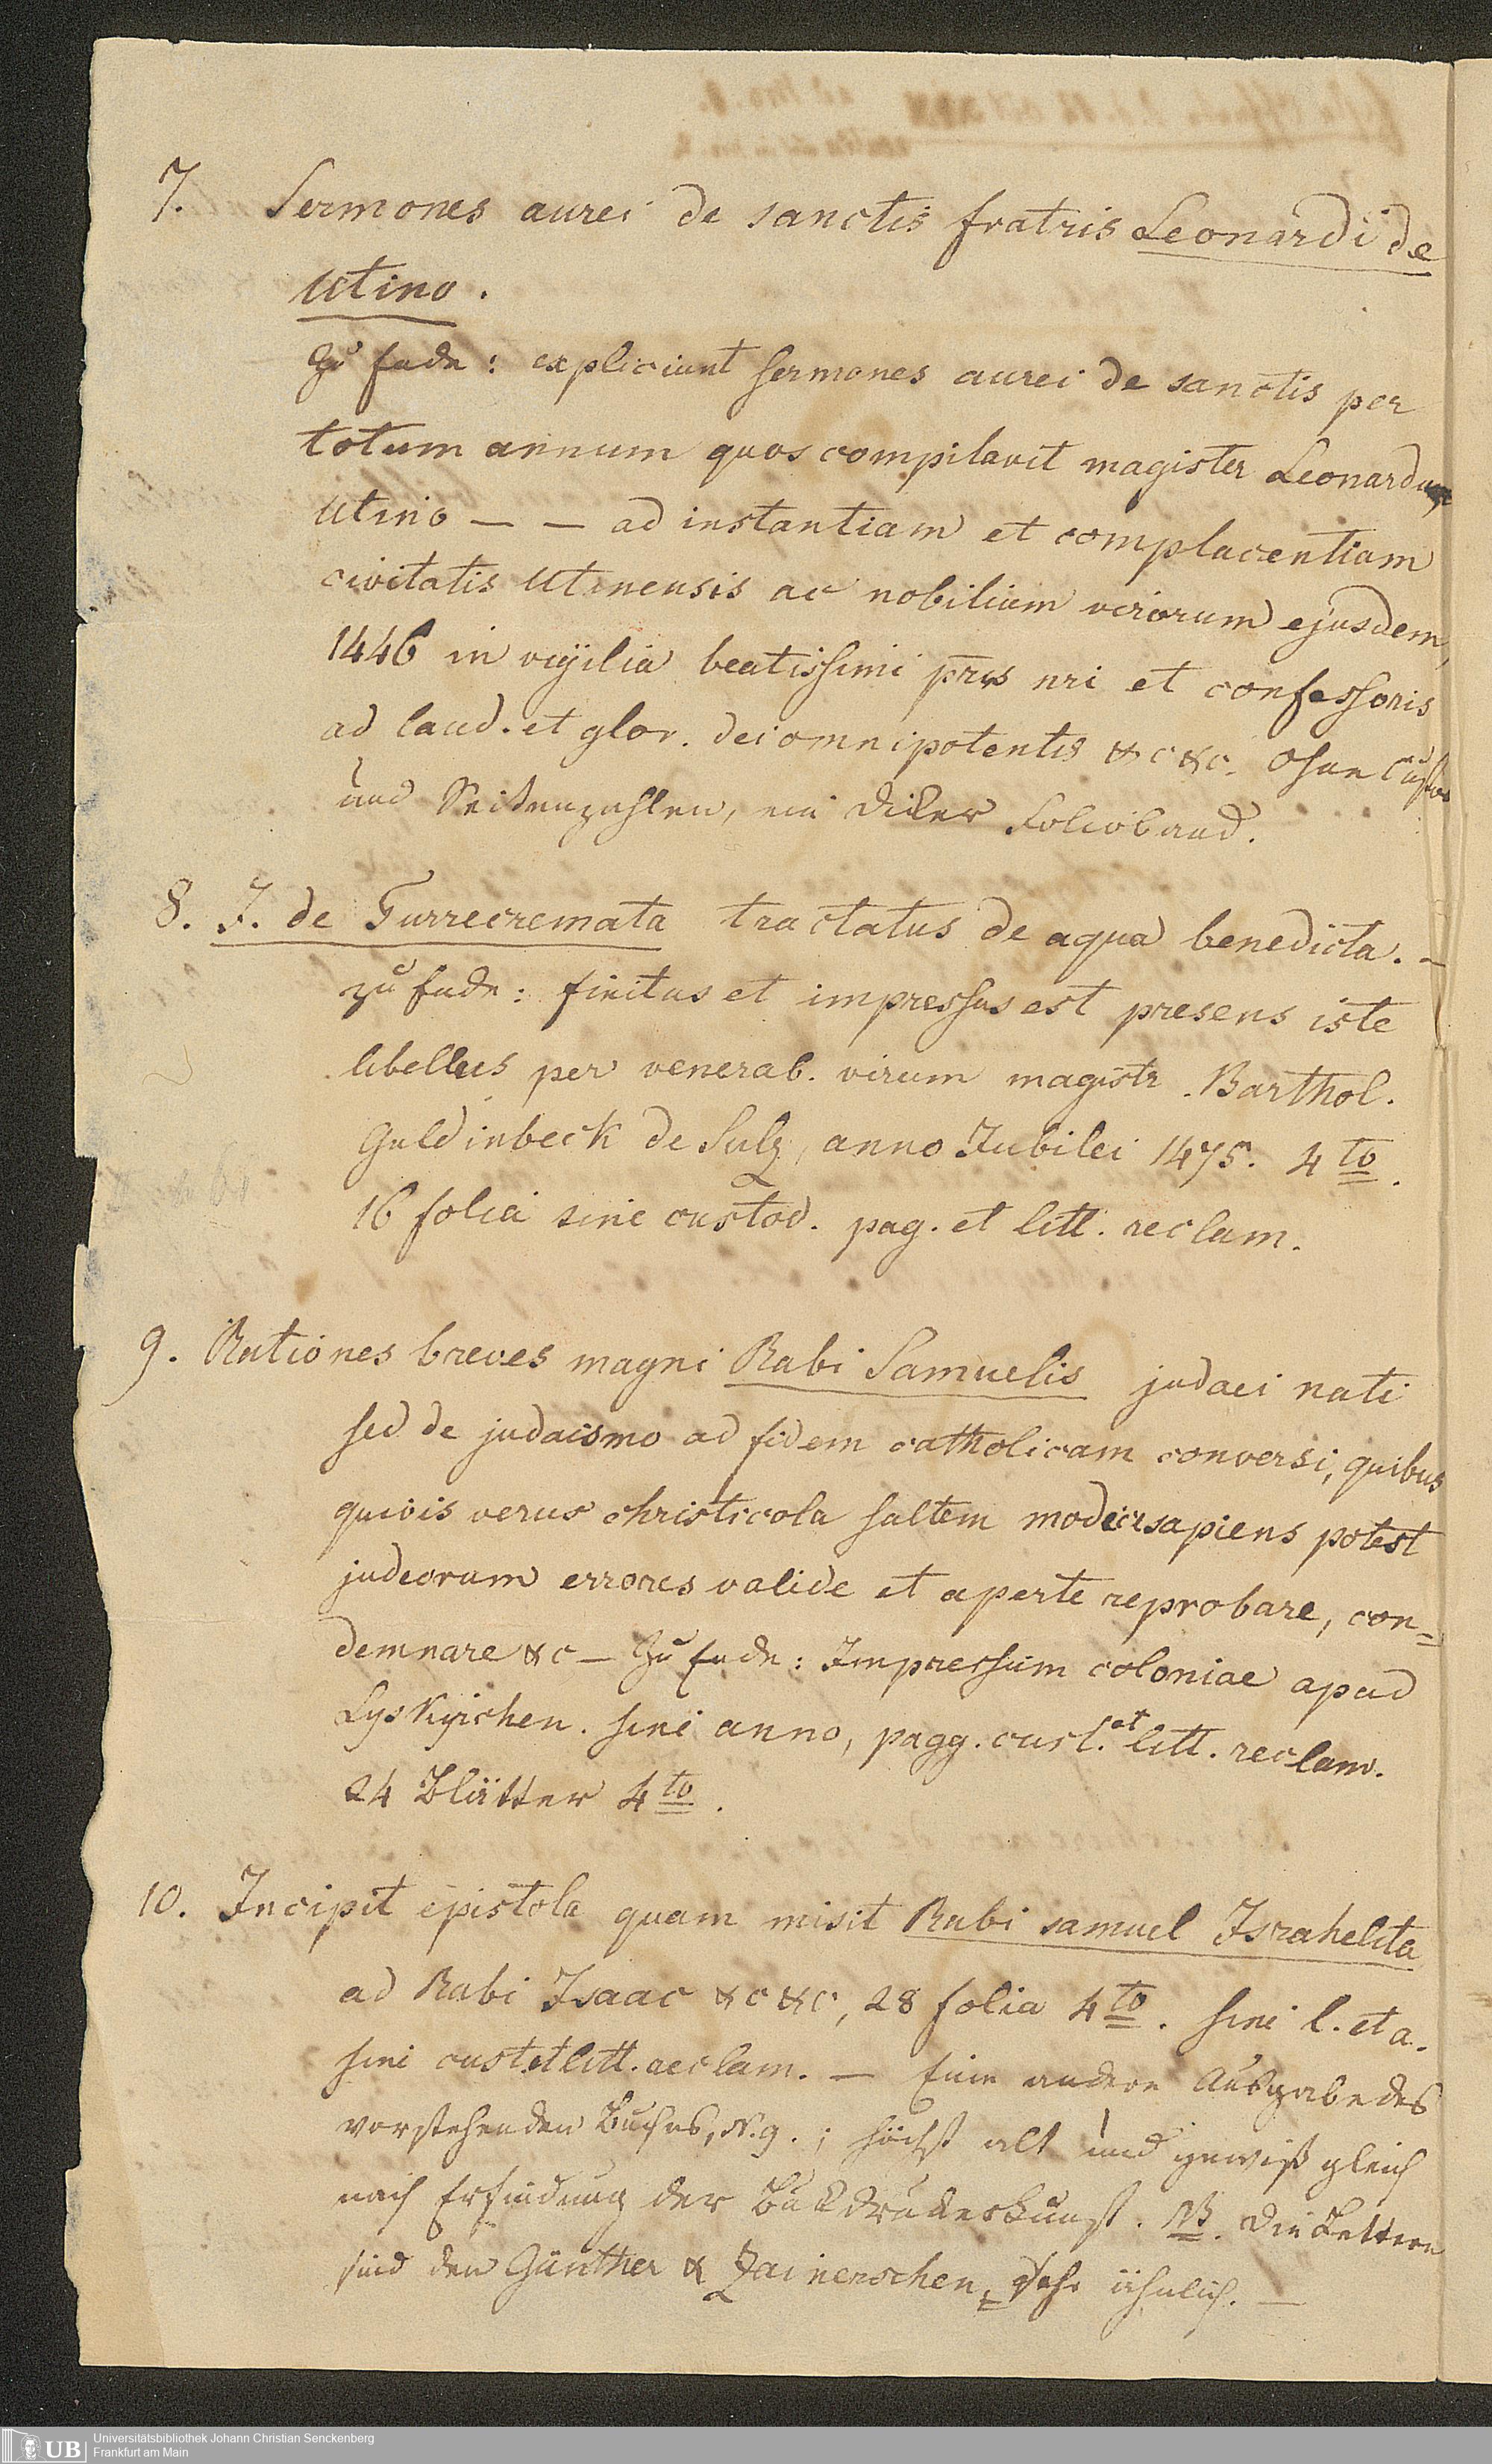 7. Sermones aurei de sanctis fratris Leonardi de
Utino.
Zu Ende: expliciunt sermones aurei de sanctis per
totum annum quos compilavit magister Leonardus
Utino — — ad instantiam et complacentiam
civitatis Utinensis ac nobilium virorum ejusdem,
1446 in vigilia beatissimi pris nri et confessoris
ad laud. et glor. dei omnipotentis &c &c. Ohne Custos
und Seitenzahlen, ein diker Folioband.
8. J. de Turrecremata tractatus de aqua benedicta. —
zu Ende: finitus et impressus est presens iste
libellus per venerab. virum magistr. Barthol.
Guldinbeck de Sulz, anno Jubilei 1475. 4to.
16 folia sine custod. pag. et litt. reclam.
9. Rationes breves magni Rabi Samuelis judaei nati
sed de judaismo ad fidem catholicam conversi, quibus
quivis verus christicola saltem modice sapiens potest
judeorum errores valide et aperte reprobare, con=
demnare &c — Zu Ende: Impressum coloniae apud
Lyskyrchen. sine anno, pagg. cust. et litt. reclam.
24 Blätter 4to.
10. Incipit epistola quam misit Rabi samuel Israhelita
ad Rabi Isaac &c &c, 28 folia 4to. sine l. et a.
sine cust et litt. reclam. — Eine andere Ausgabe des
vorstehenden Buches, N. 9.; höchst alt und gewiß gleich
nach Erfindung der Bukdrukerkunst. NB. Die Lettern
sind den Günther & Zainerschen sehr ähnlich. —
Universitätsbibliothek Johann Christian Senckenberg
Frankfurt am Main
UB